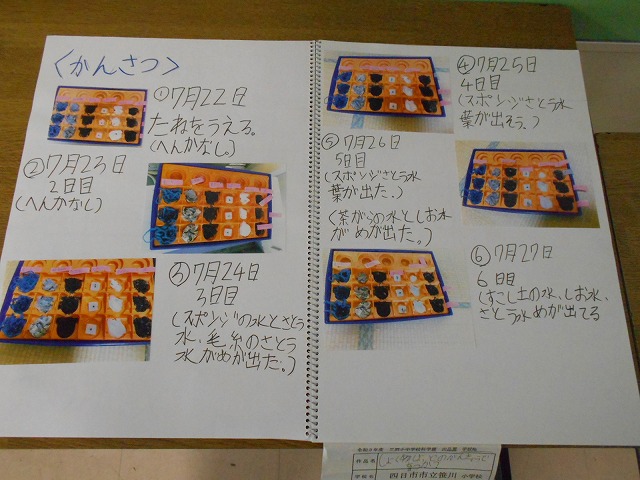 〈かんさつ〉
①7月22日
たねをうえる。
(へんかなし。)
②7月23日
2日目
(へんかなし)
③7月24日
3日目
(スポンジの水とさとう
水、毛糸のさとう
水がめが出た。)
④7月25日
4日目
(スポンジさとう水
葉が出そう。)
⑤7月26日
5日目
(スポンジさとう水
葉が出た。)
(茶がらの水としお水
がめが出た。)
⑥7月27日
6日目
(すこし土の水、しお水、
さとう水めが出てる
作品名
学校名 四日市市立笹川小学校